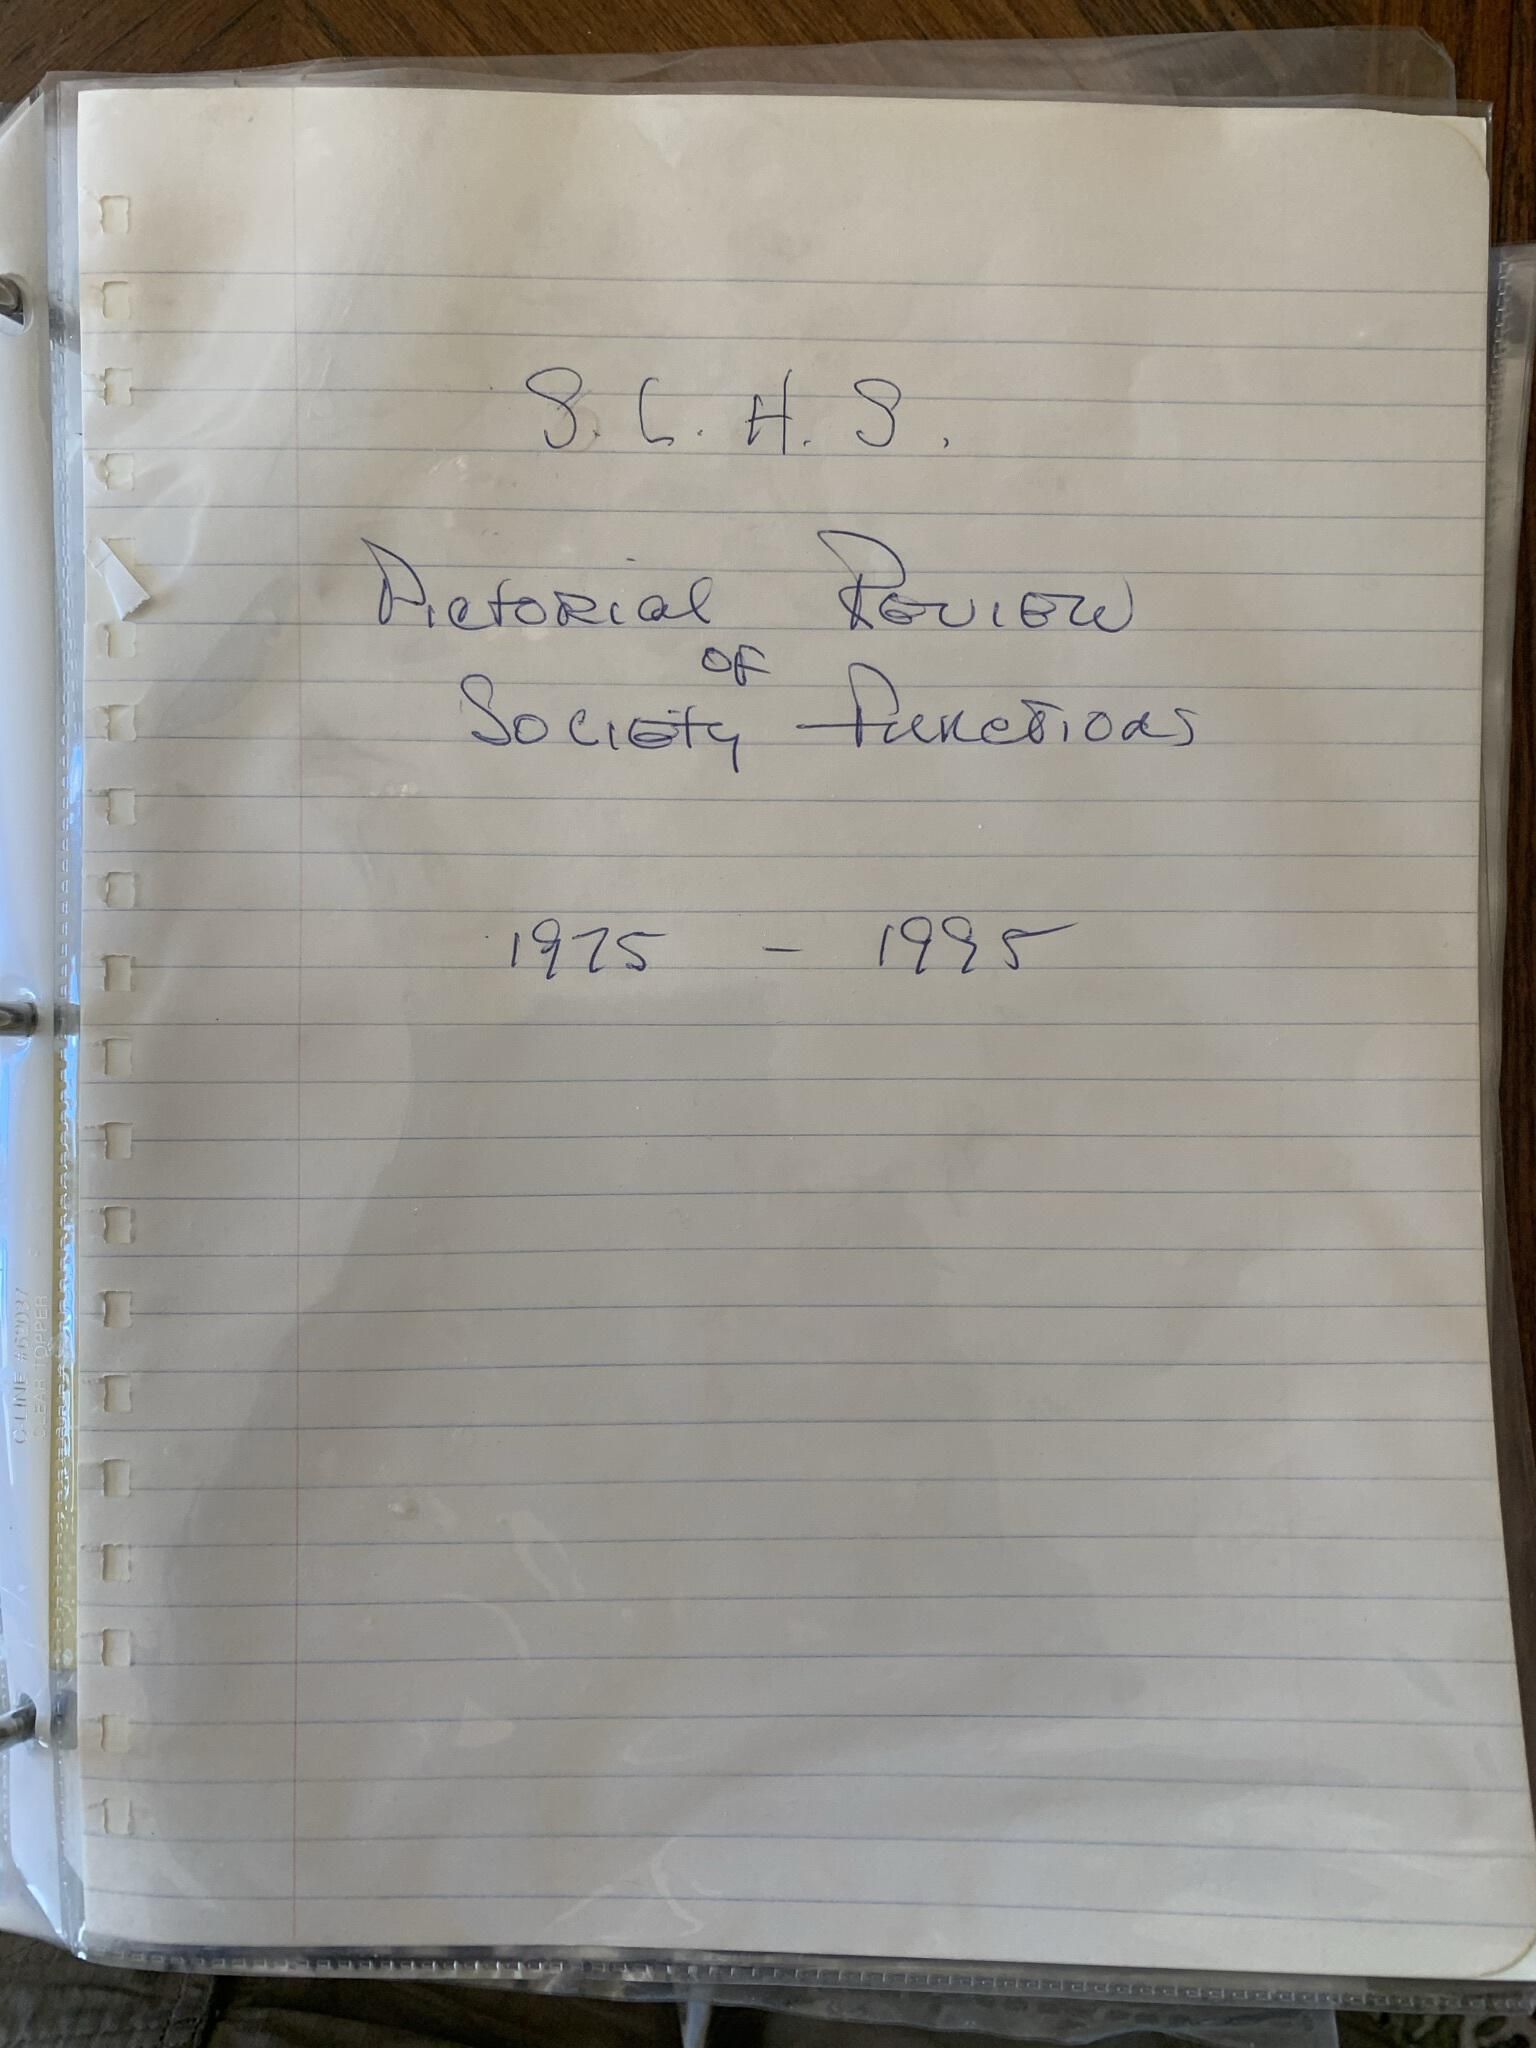 S. L. H. S.
Pictorial Review
of
Society Functions
1975 - 1995
C-LINE #62037
CLEAR TOPPER